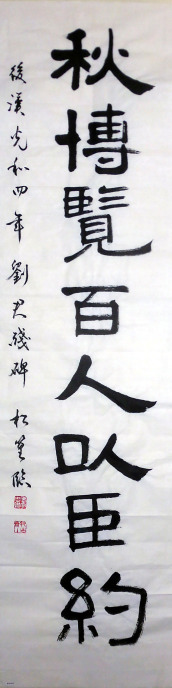 秋博覽百人以臣約
後漢光和四年劉君殘碑 松堂臨